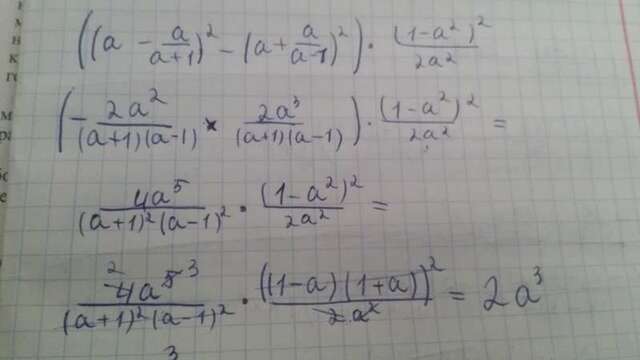 ((a - a/(a+1))² - (a + a/(a-1))²) · (1-a²)²/2a²
(- 2a²/((a+1)(a-1)) × 2a³/((a+1)(a-1))) · (1-a²)²/2a² =
4a⁵/((a+1)²(a-1)²) · (1-a²)²/2a² =
2 4a⁵ ³/((a+1)²(a-1)²) · ((1-a)(1+a))²/2a² = 2a³
3